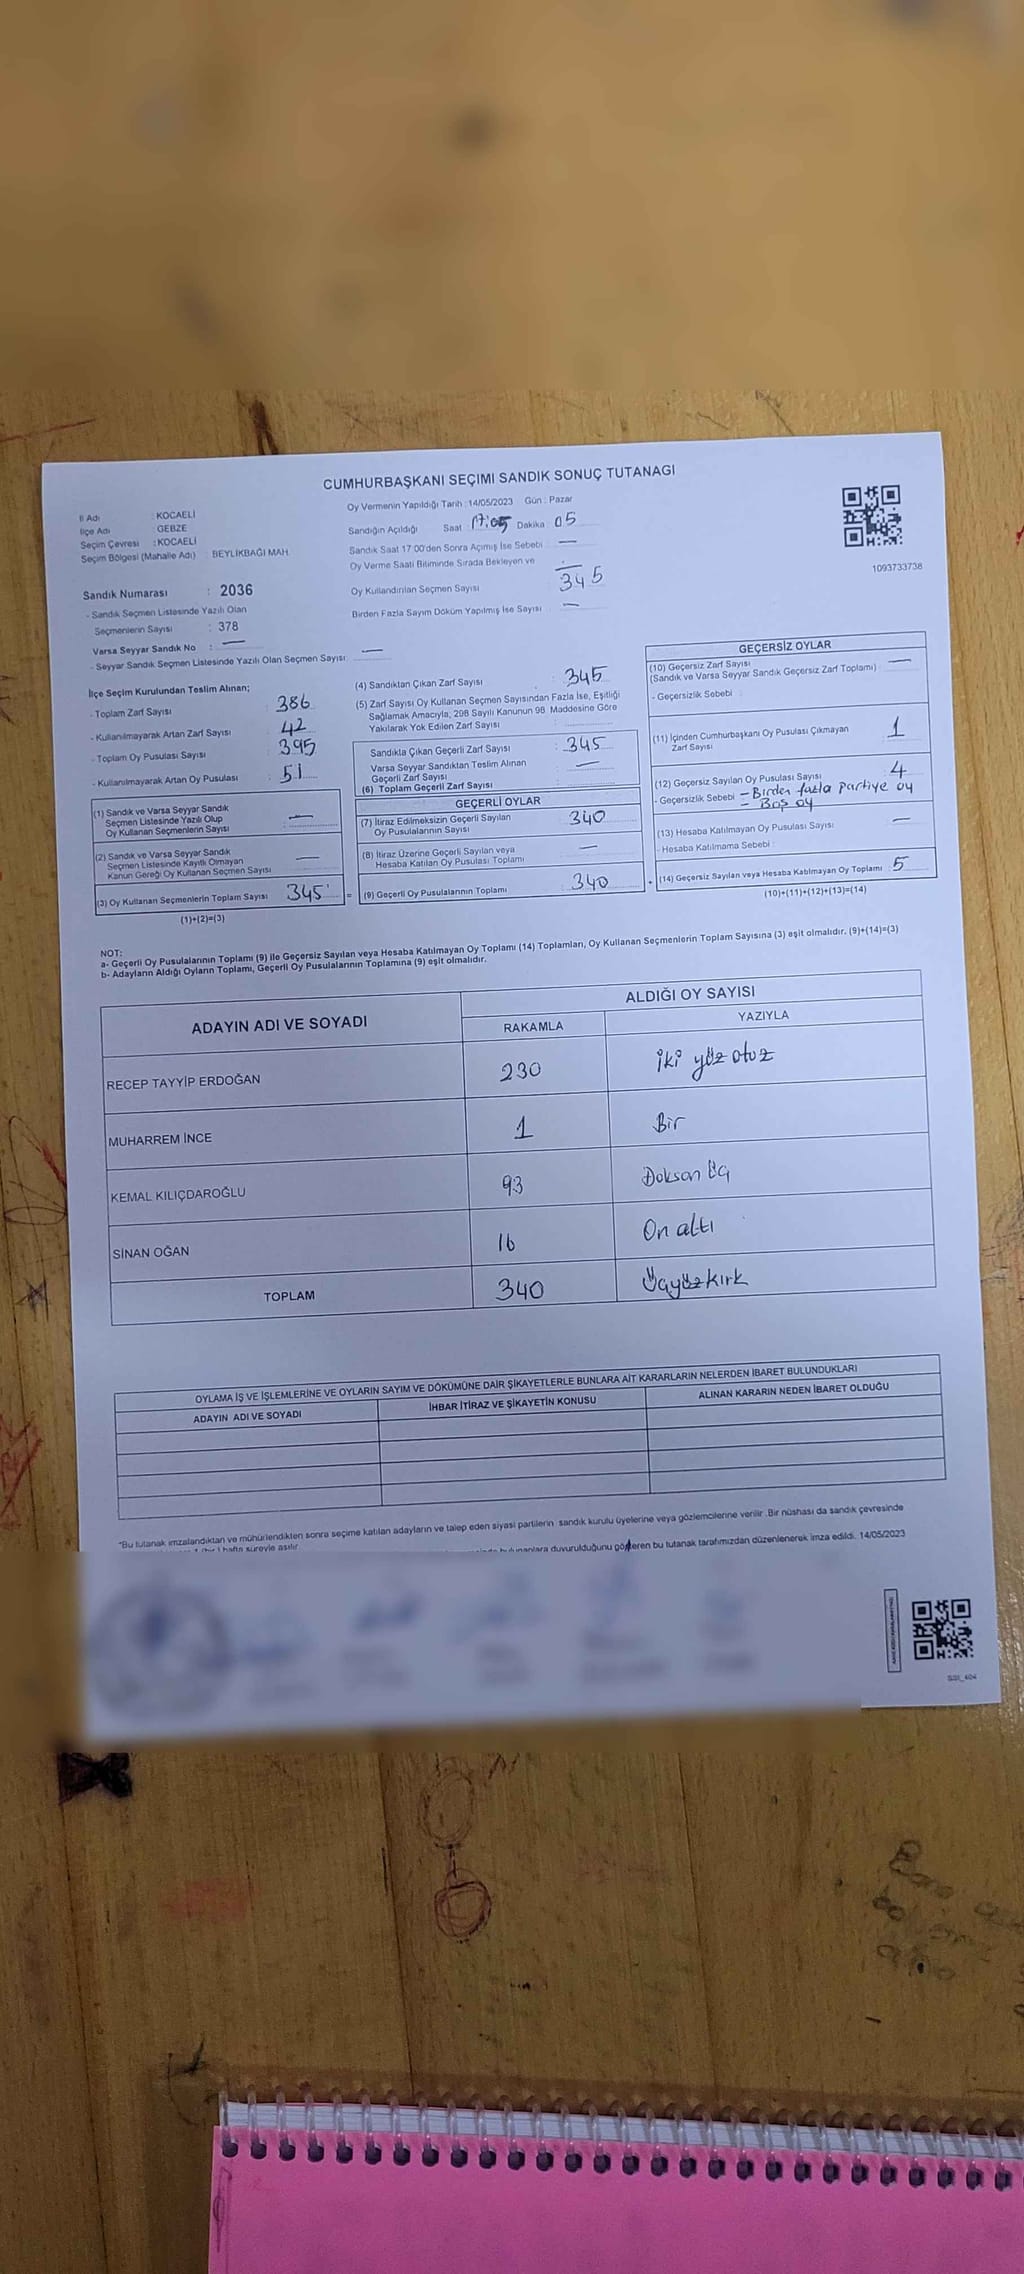 CUMHURBAŞKANI SEÇİMİ SANDIK SONUÇ TUTANAĞI
İl Adı : KOCAELİ
İlçe Adı : GEBZE
Seçim Çevresi : KOCAELİ
Seçim Bölgesi (Mahalle Adı) : BEYLİKBAĞI MAH.
Sandık Numarası : 2036
- Sandık Seçmen Listesinde Yazılı Olan
Seçmenlerin Sayısı : 378
Varsa Seyyar Sandık No : —
- Seyyar Sandık Seçmen Listesinde Yazılı Olan Seçmen Sayısı: —
Oy Vermenin Yapıldığı Tarih : 14/05/2023 Gün : Pazar
Sandığın Açıldığı Saat 17:05 Dakika 05
Sandık Saat 17:00'den Sonra Açımış İse Sebebi : —
Oy Verme Saati Bitiminde Sırada Bekleyen ve
Oy Kullandırılan Seçmen Sayısı 345
Birden Fazla Sayım Döküm Yapılmış İse Sayısı : —
1093733738
İlçe Seçim Kurulundan Teslim Alınan;
- Toplam Zarf Sayısı : 386
- Kullanılmayarak Artan Zarf Sayısı : 42
- Toplam Oy Pusulası Sayısı : 395
- Kullanılmayarak Artan Oy Pusulası : 51
(1) Sandık ve Varsa Seyyar Sandık
Seçmen Listesinde Yazılı Olup
Oy Kullanan Seçmenlerin Sayısı : —
(2) Sandık ve Varsa Seyyar Sandık
Seçmen Listesinde Kayıtlı Olmayan
Kanun Gereği Oy Kullanan Seçmen Sayısı —
(3) Oy Kullanan Seçmenlerin Toplam Sayısı 345 =
(1)+(2)=(3)
(4) Sandıktan Çıkan Zarf Sayısı : 345
(5) Zarf Sayısı Oy Kullanan Seçmen Sayısından Fazla İse, Eşitliği
Sağlamak Amacıyla, 298 Sayılı Kanunun 98. Maddesine Göre
Yakılarak Yok Edilen Zarf Sayısı :
Sandıkta Çıkan Geçerli Zarf Sayısı : 345
Varsa Seyyar Sandıktan Teslim Alınan
Geçerli Zarf Sayısı : —
(6) Toplam Geçerli Zarf Sayısı :
GEÇERLİ OYLAR
(7) İtiraz Edilmeksizin Geçerli Sayılan
Oy Pusulalarının Sayısı : 340
(8) İtiraz Üzerine Geçerli Sayılan veya
Hesaba Katılan Oy Pusulası Toplamı : —
(9) Geçerli Oy Pusulalarının Toplamı 340 +
GEÇERSİZ OYLAR
(10) Geçersiz Zarf Sayısı
(Sandık ve Varsa Seyyar Sandık Geçersiz Zarf Toplamı) : —
- Geçersizlik Sebebi :
(11) İçinden Cumhurbaşkanı Oy Pusulası Çıkmayan
Zarf Sayısı : 1
(12) Geçersiz Sayılan Oy Pusulası Sayısı 4
- Geçersizlik Sebebi = Birden fazla partiye oy
= Boş oy
(13) Hesaba Katılmayan Oy Pusulası Sayısı : —
- Hesaba Katılmama Sebebi :
(14) Geçersiz Sayılan veya Hesaba Katılmayan Oy Toplamı 5
(10)+(11)+(12)+(13)=(14)
NOT:
a- Geçerli Oy Pusulalarının Toplamı (9) ile Geçersiz Sayılan veya Hesaba Katılmayan Oy Toplamı (14) Toplamları, Oy Kullanan Seçmenlerin Toplam Sayısına (3) eşit olmalıdır. (9)+(14)=(3)
b- Adayların Aldığı Oyların Toplamı, Geçerli Oy Pusulalarının Toplamına (9) eşit olmalıdır.
ADAYIN ADI VE SOYADI ALDIĞI OY SAYISI
RAKAMLA YAZIYLA
RECEP TAYYİP ERDOĞAN 230 iki yüz otuz
MUHARREM İNCE 1 Bir
KEMAL KILIÇDAROĞLU 93 Doksan Üç
SİNAN OĞAN 16 On altı
TOPLAM 340 Üçyüzkırk
OYLAMA İŞ VE İŞLEMLERİNE VE OYLARIN SAYIM VE DÖKÜMÜNE DAİR ŞİKAYETLERLE BUNLARA AİT KARARLARIN NELERDEN İBARET BULUNDUKLARI
ADAYIN ADI VE SOYADI İHBAR İTİRAZ VE ŞİKAYETİN KONUSU ALINAN KARARIN NEDEN İBARET OLDUĞU
*Bu tutanak imzalandıktan ve mühürlendikten sonra seçime katılan adayların ve talep eden siyasi partilerin sandık kurulu üyelerine veya gözlemcilerine verilir. Bir nüshası da sandık çevresinde
hafta süreyle asılır. bulunanlara duyurulduğunu gösteren bu tutanak tarafımızdan düzenlenerek imza edildi. 14/05/2023